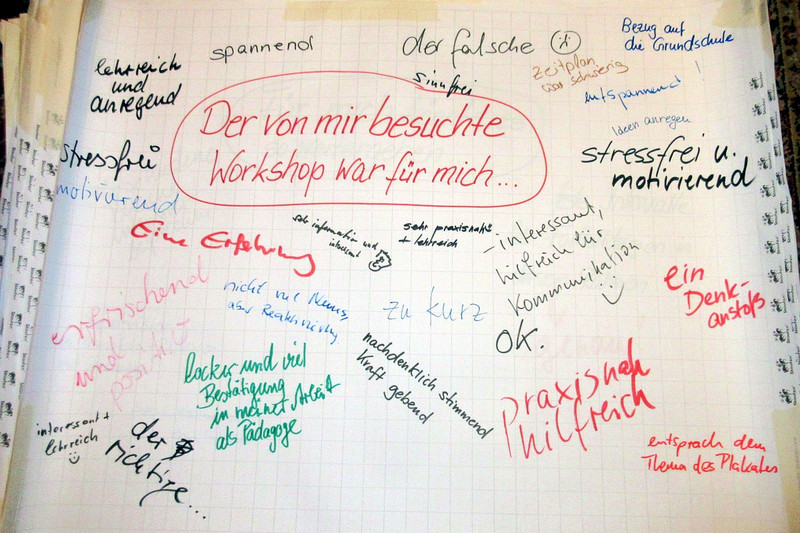 lehrreich
und
anregend
spannend
der falsche
sinnfrei
Zeitplan
war schwierig
Bezug auf
die Grundschule
entspannend!
Ideen anregen
Der von mir besuchte
Workshop war für mich...
stressfrei
motivierend
stressfrei u.
motivierend
Eine Erfahrung
sehr informativ und
interessant
sehr praxisnah
+ lehrreich
- interessant,
hilfreich für
Kommunikation
OK.
ein
Denk-
anstoß
erfrischend
und
positiv
nicht viel Neues,
aber Reaktivierung
zu kurz
locker und viel
Bestätigung
in meiner Arbeit
als Pädagoge
nachdenklich stimmend
Kraft gebend
praxisnah
hilfreich
interessant +
lehrreich
der
richtige...
entsprach dem
Thema des Plakates